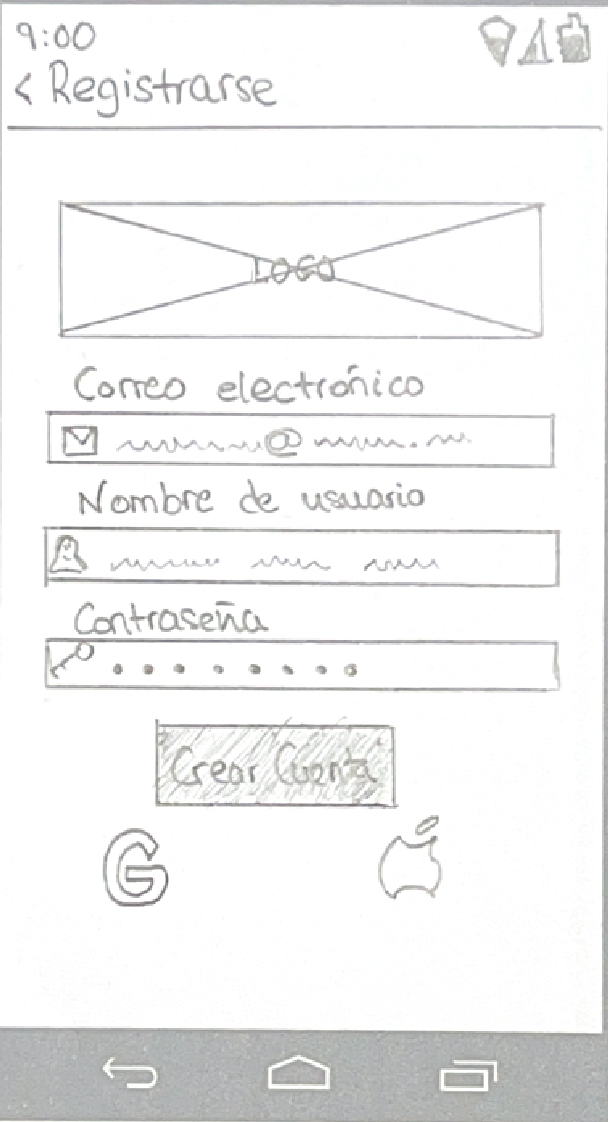 9:00
< Registrarse
LOGO
Correo electrónico
@ .
Nombre de usuario
Contraseña
Crear Cuenta
G